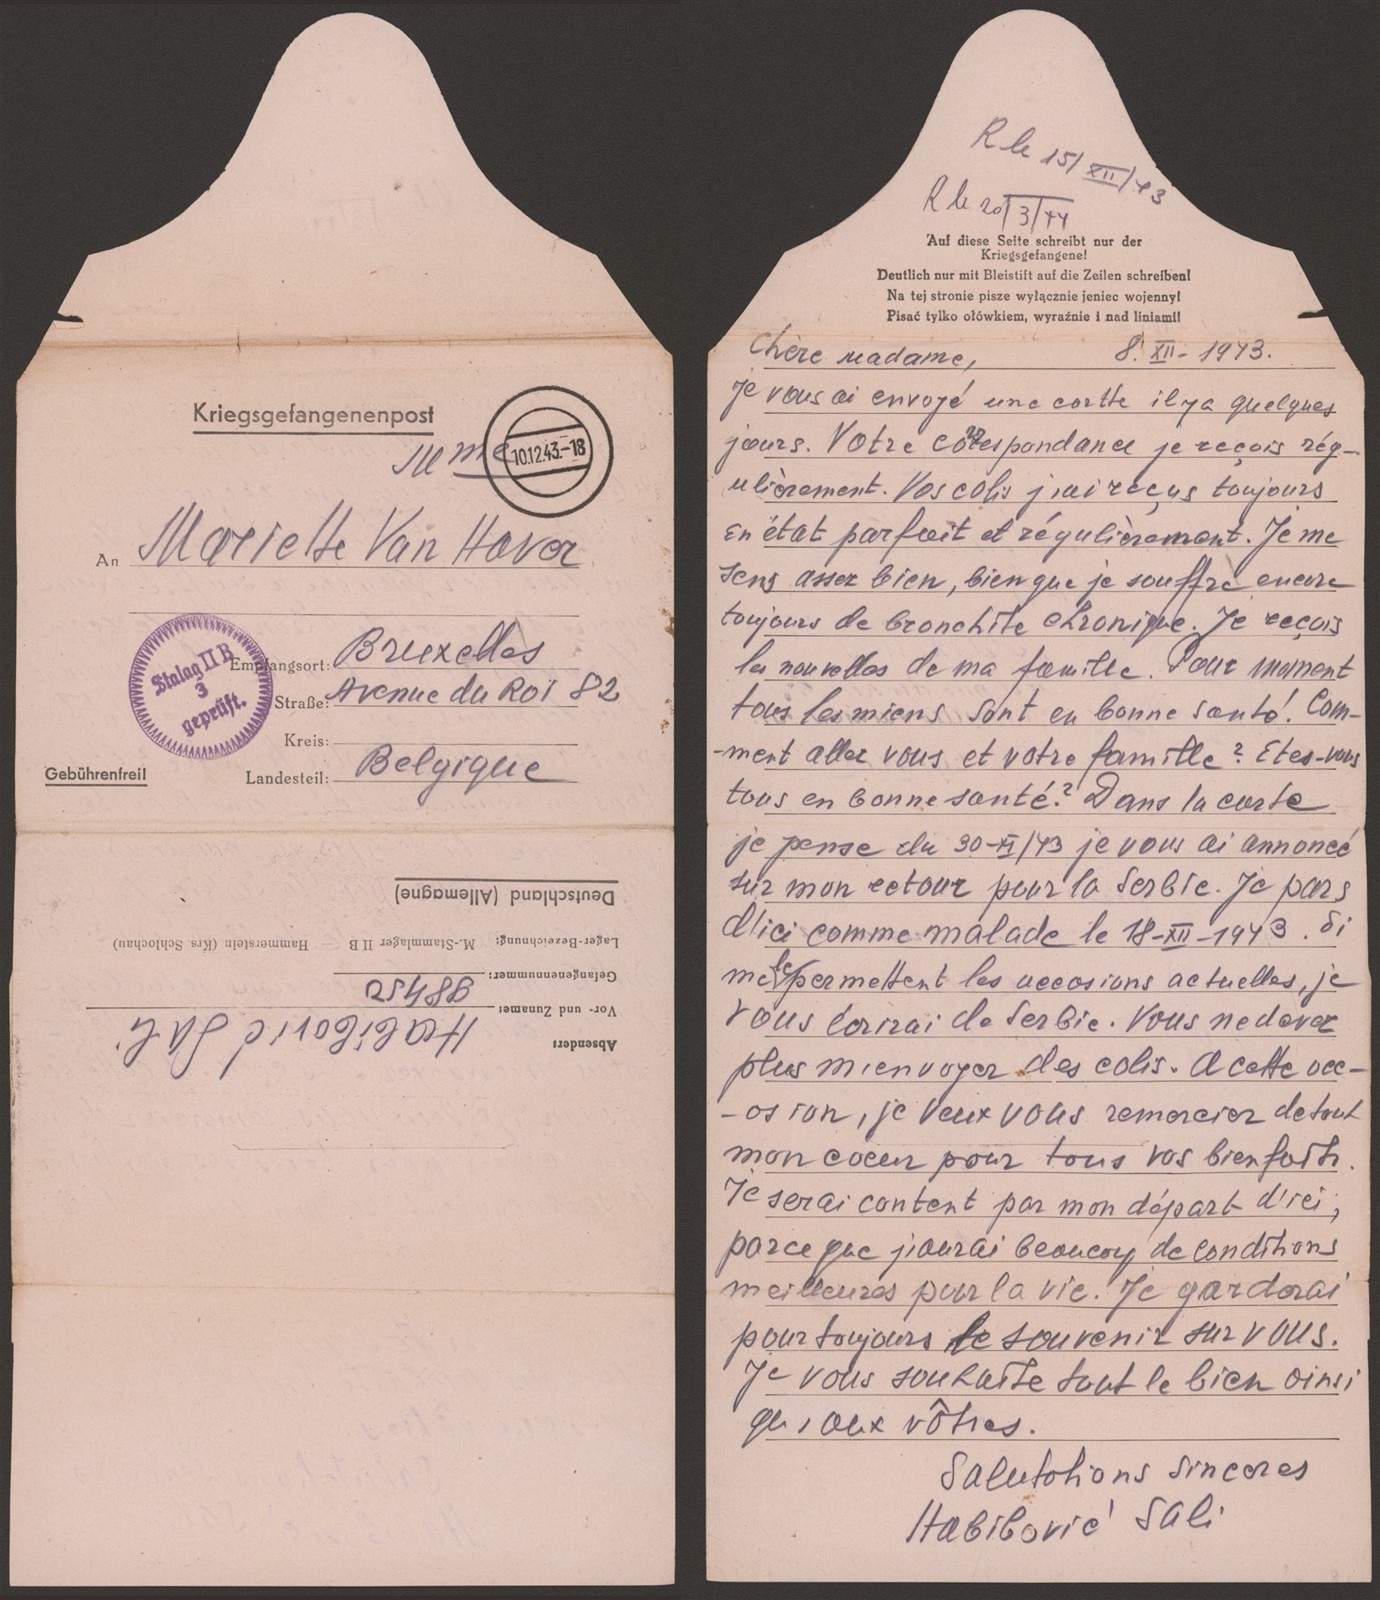 Kriegsgefangenenpost
Mme
10.12.43.-18
An Mariette Van Haver
Stalag II B
3
geprüft.
Empfangsort: Bruxelles
Straße: Avenue du Roi 82
Kreis:
Gebührenfrei!
Landesteil: Belgique
Deutschland (Allemagne)
Lager-Bezeichnung: M.-Stammlager II B — Hammerstein (Krs Schlochau)
Gefangenennummer: 98452
Vor- und Zuname:
Absender: Habibović Sali
R le 15/XII/43
R le 20/3/44
Auf diese Seite schreibt nur der
Kriegsgefangene!
Deutlich nur mit Bleistift auf die Zeilen schreiben!
Na tej stronie pisze wyłącznie jeniec wojenny!
Pisać tylko ołówkiem, wyraźnie i nad liniami!
Chère madame, 8. XII - 1943.
Je vous ai envoyé une cartte il y a quelques
jours. Votre correspondance je reçois rég-
ulièrement. Vos colis j'ai reçus toujours
en état parfait et régulièrement. Je me
sens assez bien, bien que je souffre encore
toujours de bronchite chronique. Je reçois
les nouvelles de ma famille. Pour moment
tous les miens sont en bonne santé! Com-
-ment allez vous et votre famille? Etes-vous
tous en bonne santé? Dans la carte
je pense du 30-XI/43 je vous ai annoncé
sur mon retour pour la Serbie. Je pars
d'ici comme malade le 18-XII-1943. Si
me le permettent les occasions actuelles, je
vous écrirai de Serbie. Vous ne devez
plus m'envoyer des colis. A cette occ-
-asion, je veux vous remercier de tout
mon coeur pour tous vos bienfaits.
Je serai content par mon départ d'ici,
parce que j'aurai beaucoup de conditions
meilleures pour la vie. Je garderai
pour toujours le souvenir sur vous.
Je vous souhaite tout le bien ainsi
qu'aux vôtres.
Salutations sincères
Habibović Sali